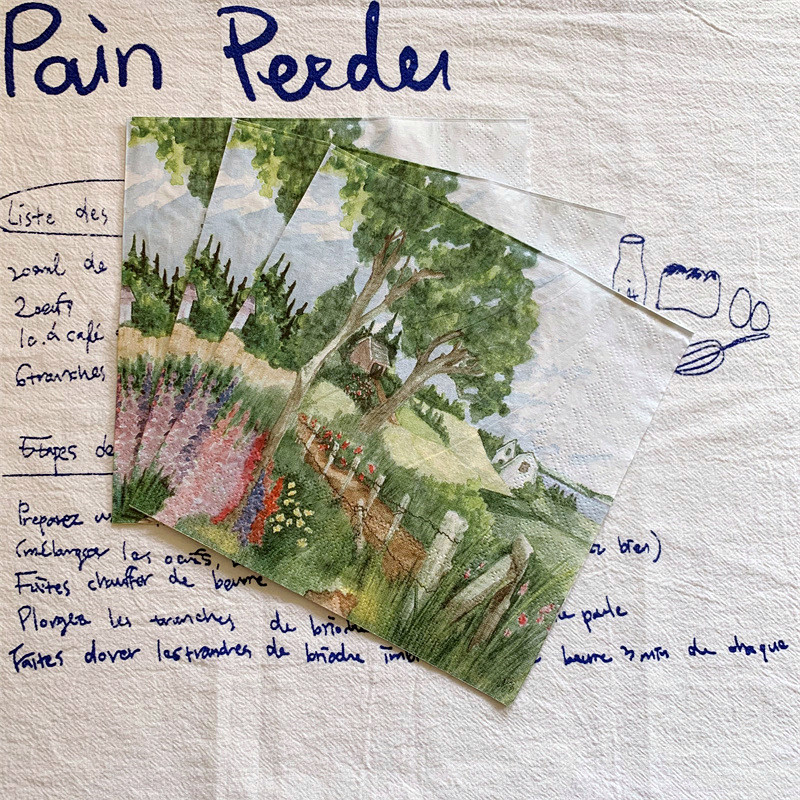 Pain Perdu
Liste des
20aml de
2oeufs
1c.à café
6tranches
Etapes de
Preparez u
(mélanger les oeufs, bien)
Faites chauffer de beurre
Plongez les tranches de brioche poele
Faites dorer les tranches de brioche imb beurre 3 min de chaque